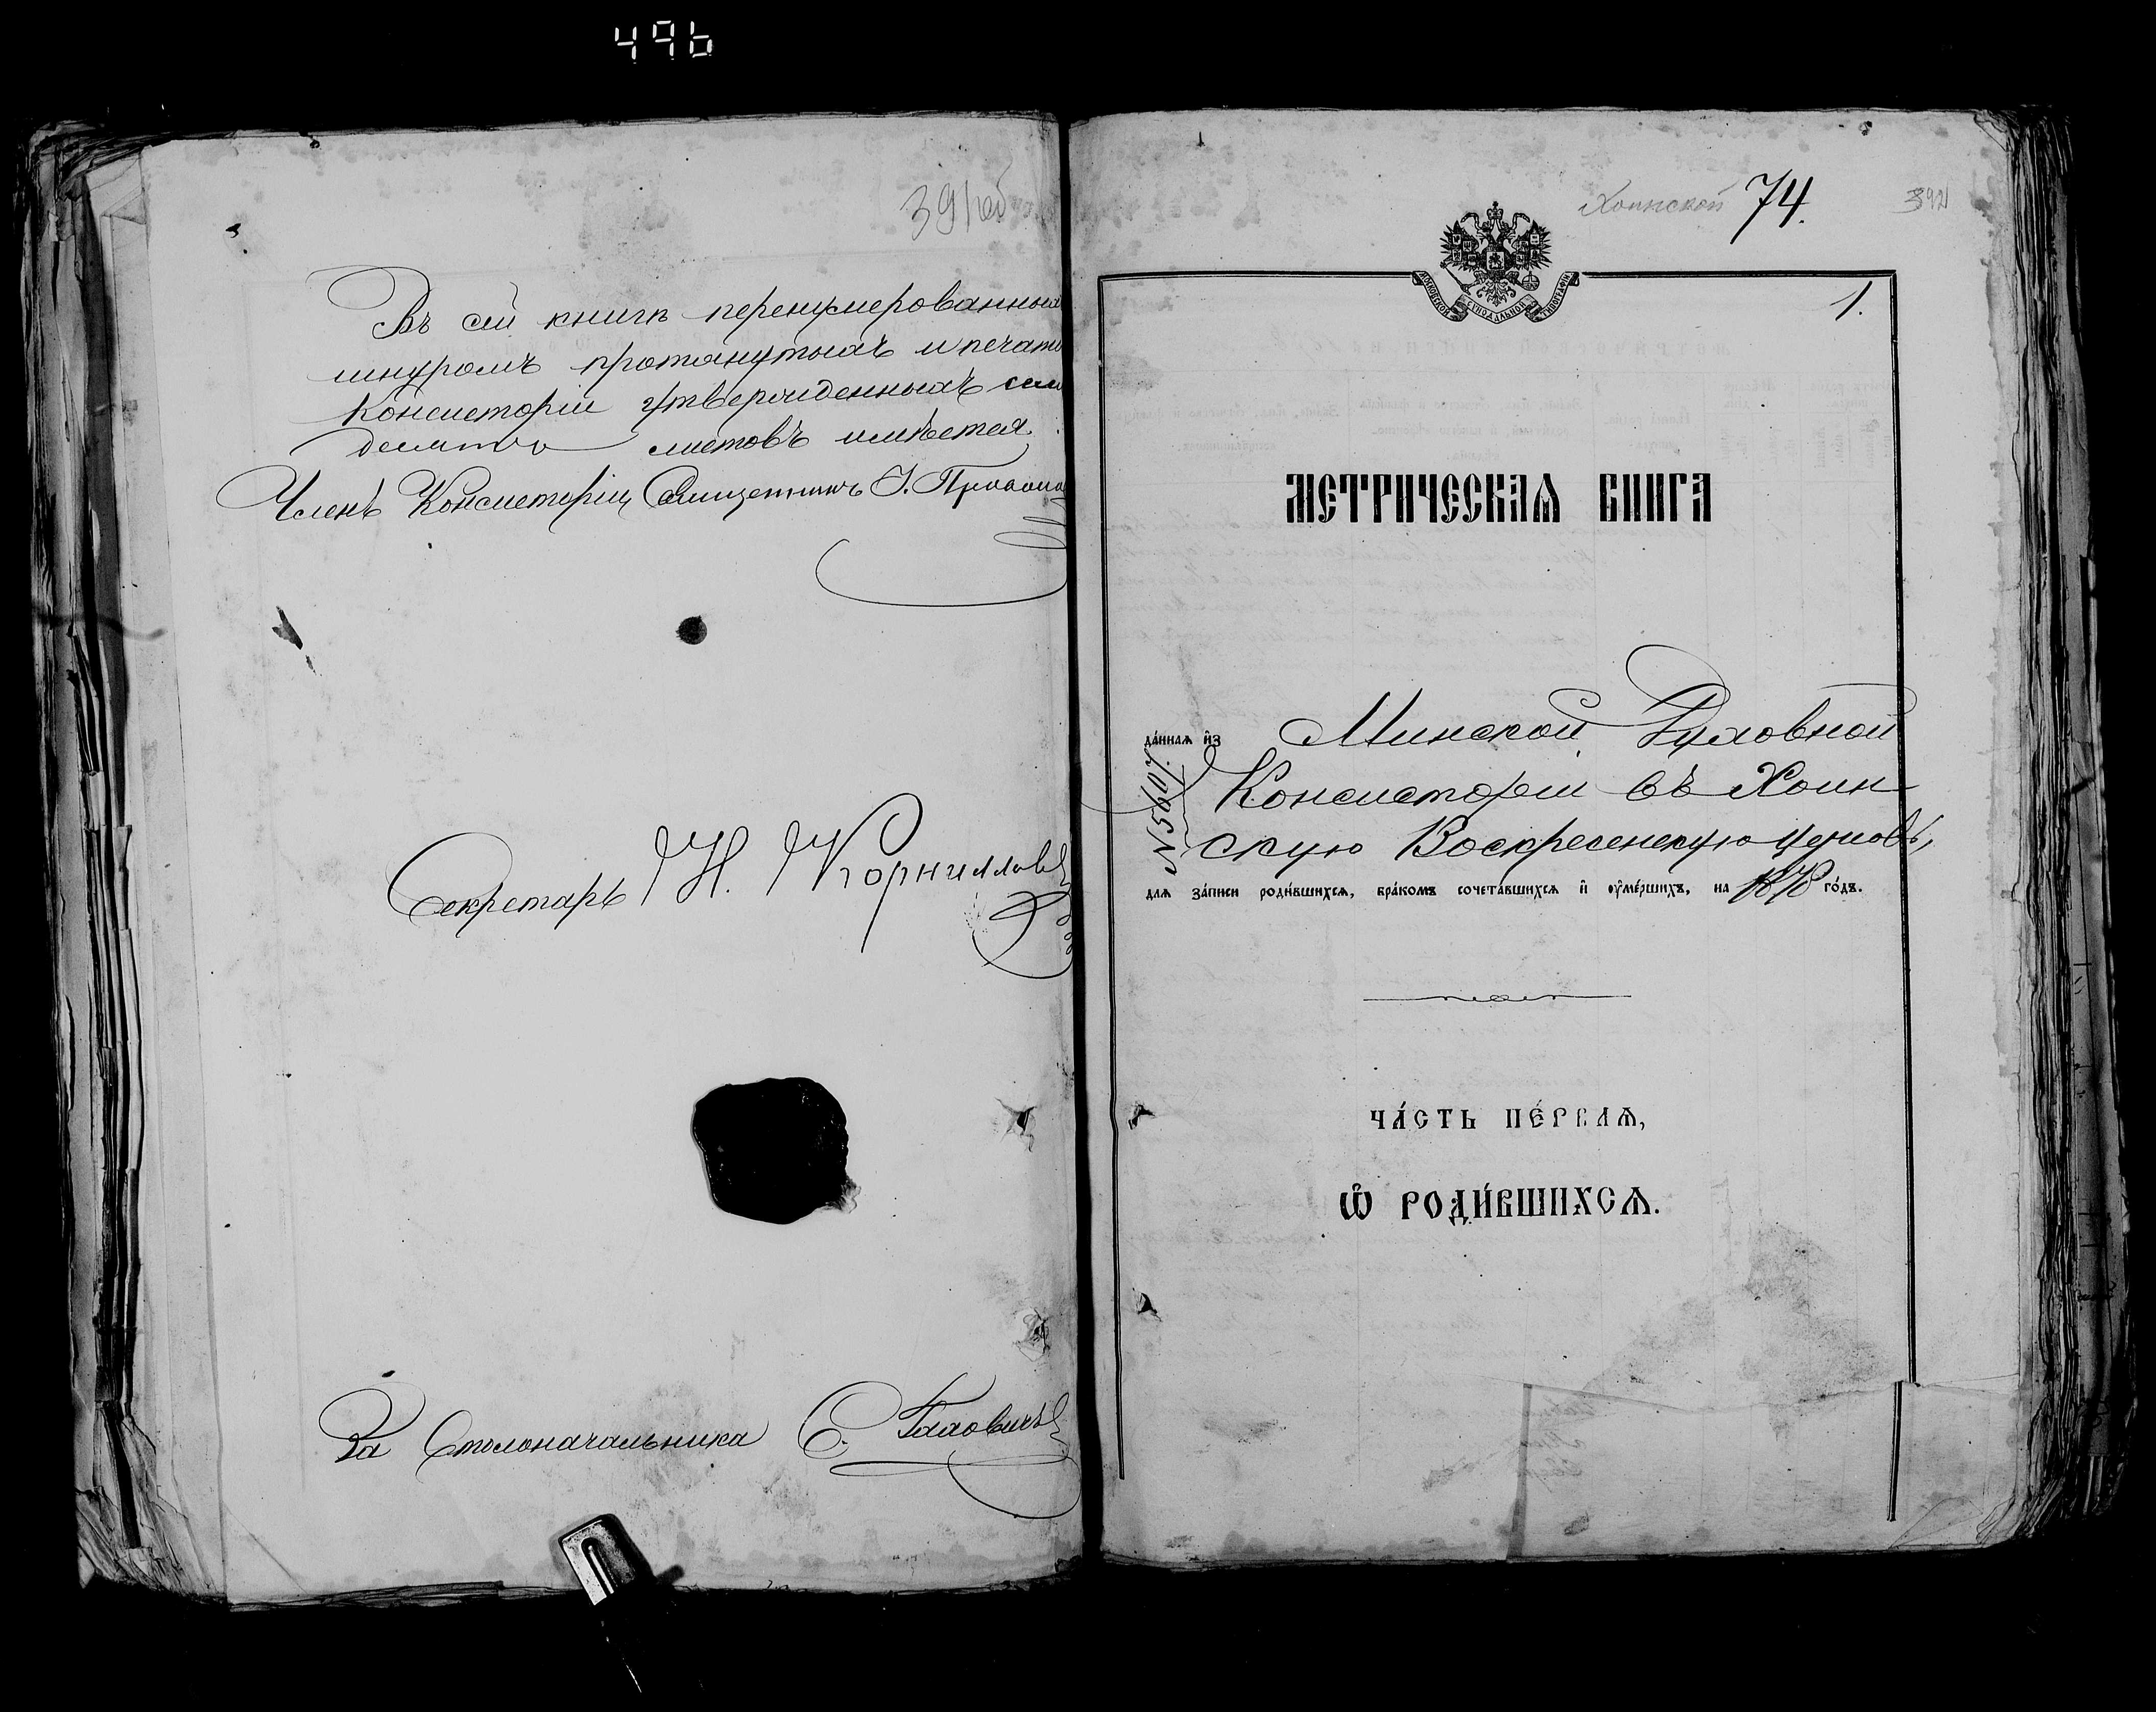 496
391об
Въ сей книгѣ перенумерованныхъ
шнуромъ протянутыхъ и печатью
Консисторіи утвержденныхъ
десять листовъ имѣется
Членъ Консисторіи Священникъ І.
Секретарь Н. Корниллов
За Столоначальника С.
Хоинской 74.
392
МОСКОВСКОЙ СѴНОДАЛЬНОЙ ТИПОГРАФІИ
1.
МЕТРИЧЕСКАѦ КНИГА
да́ннаѧ и҆з Минской Духовной
№ 5607.
Консисторіи въ Хоин-
скую Воскресенскую церковь,
длѧ за́писи роди́вшихсѧ, бра́комъ сочета́вшихсѧ и҆ ᲂу҆ме́ршихъ, на 1878 го́дъ.
ЧА́СТЬ ПЕ́РВАѦ,
Ѡ҆ РОДИ́ВШИХСѦ.